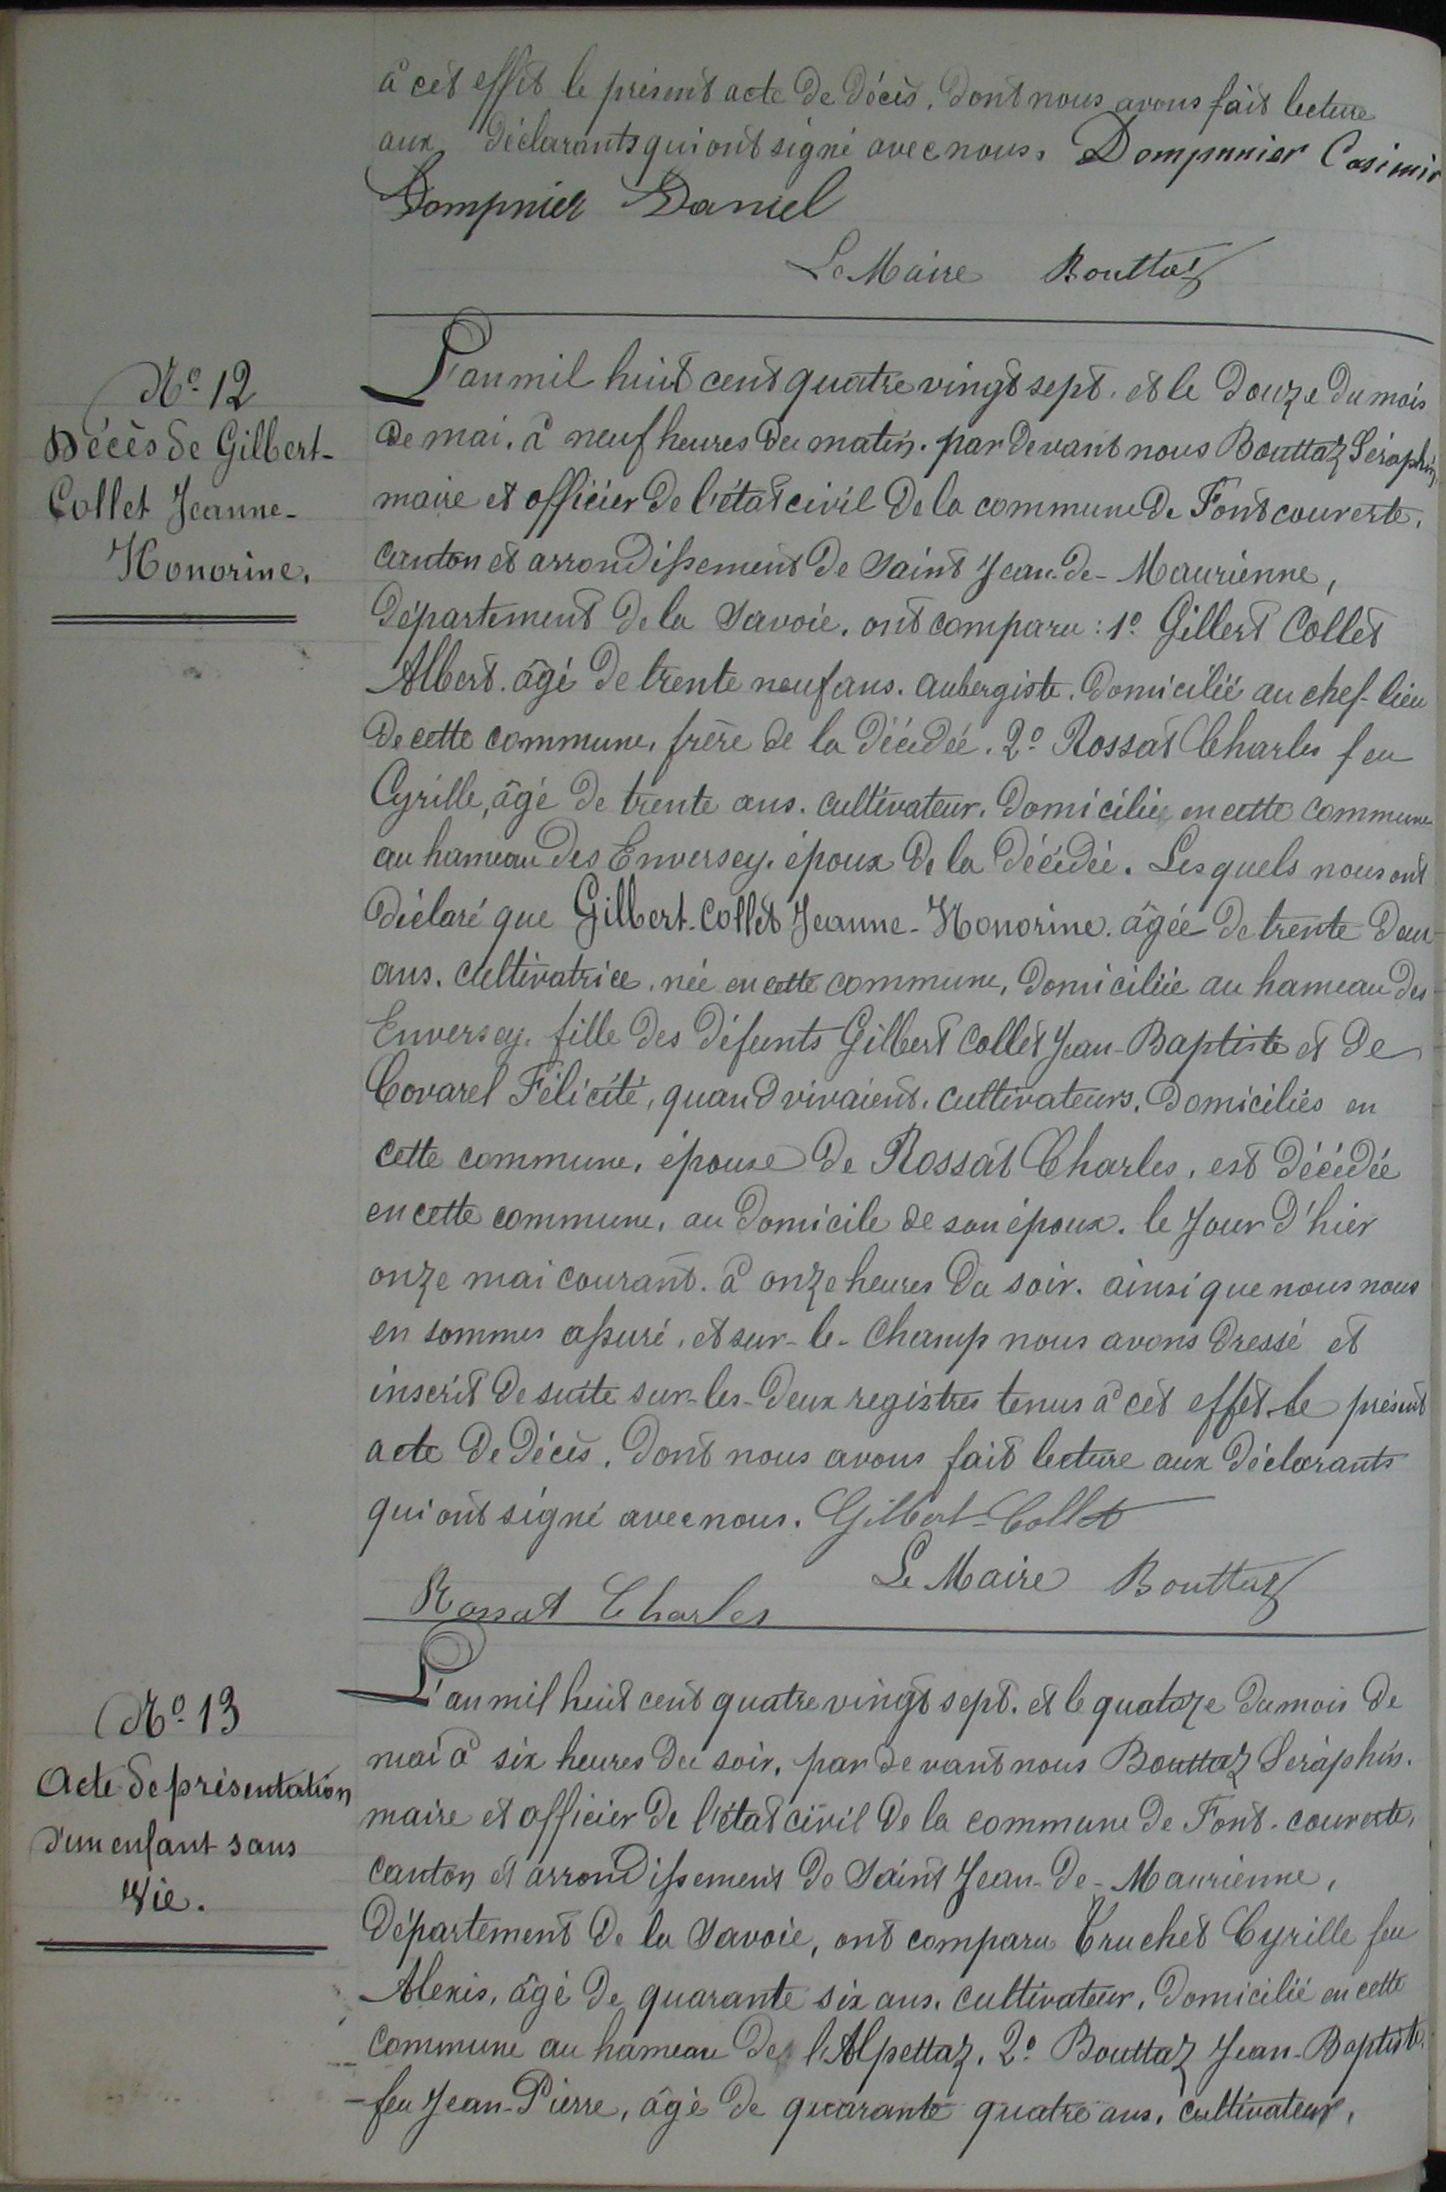 à cet effet le présent acte de décès. dont nous avons fait lecture
aux déclarants qui ont signé avec nous. Dompnnier Casimir
Dompnier Daniel
Le Maire Bouttaz
Nº 12
Décès de Gilbert-
Collet Jeanne-
Honorine.
L'an mil huit cent quatre vingt sept. et le douze du mois
de mai. à neuf heures du matin. par devant nous Bouttaz Séraphin,
maire et officier de l'état civil de la commune de Fontcouverte.
canton et arrondissement de Saint Jean-de-Maurienne,
département de la Savoie. ont comparu : 1º Gilbert Collet
Albert. âgé de trente neuf ans. aubergiste. domicilié au chef-lieu
de cette commune. frère de la décédée. 2º Rossat Charles feu
Cyrille, âgé de trente ans. cultivateur. domicilié en cette commune
au hameau des Enversey. époux de la décédée. Lesquels nous ont
déclaré que Gilbert-Collet Jeanne-Honorine. âgée de trente deux
ans. cultivatrice. née en cette commune, domiciliée au hameau des
Enversey. fille des défunts Gilbert Collet Jean-Baptiste et de
Covarel Félicité, quand vivaient. cultivateurs. domiciliés en
cette commune, épouse de Rossat Charles, est décédée
en cette commune, au domicile de son époux. le jour d'hier
onze mai courant. à onze heures du soir. ainsi que nous nous
en sommes assuré, et sur-le-champ nous avons dressé et
inscrit de suite sur-les-deux registres tenus à cet effet le présent
acte de décès. dont nous avons fait lecture aux déclarants
qui ont signé avec nous. Gilbert-Collet
Le Maire Bouttaz
Rossat Charles
Nº 13
Acte de présentation
d'un enfant sans
vie.
L'an mil huit cent quatre vingt sept. et le quatorze du mois de
mai à six heures du soir, par devant nous Bouttaz Séraphin.
maire et officier de l'état civil de la commune de Font-couverte,
canton et arrondissement de Saint Jean-de-Maurienne,
département de la Savoie, ont comparu Truchet Cyrille feu
Alexis, âgé de quarante six ans. cultivateur, domicilié en cette
commune au hameau de l'Alpettaz. 2º Bouttaz Jean-Baptiste
feu Jean-Pierre, âgé de quarante quatre ans, cultivateur,